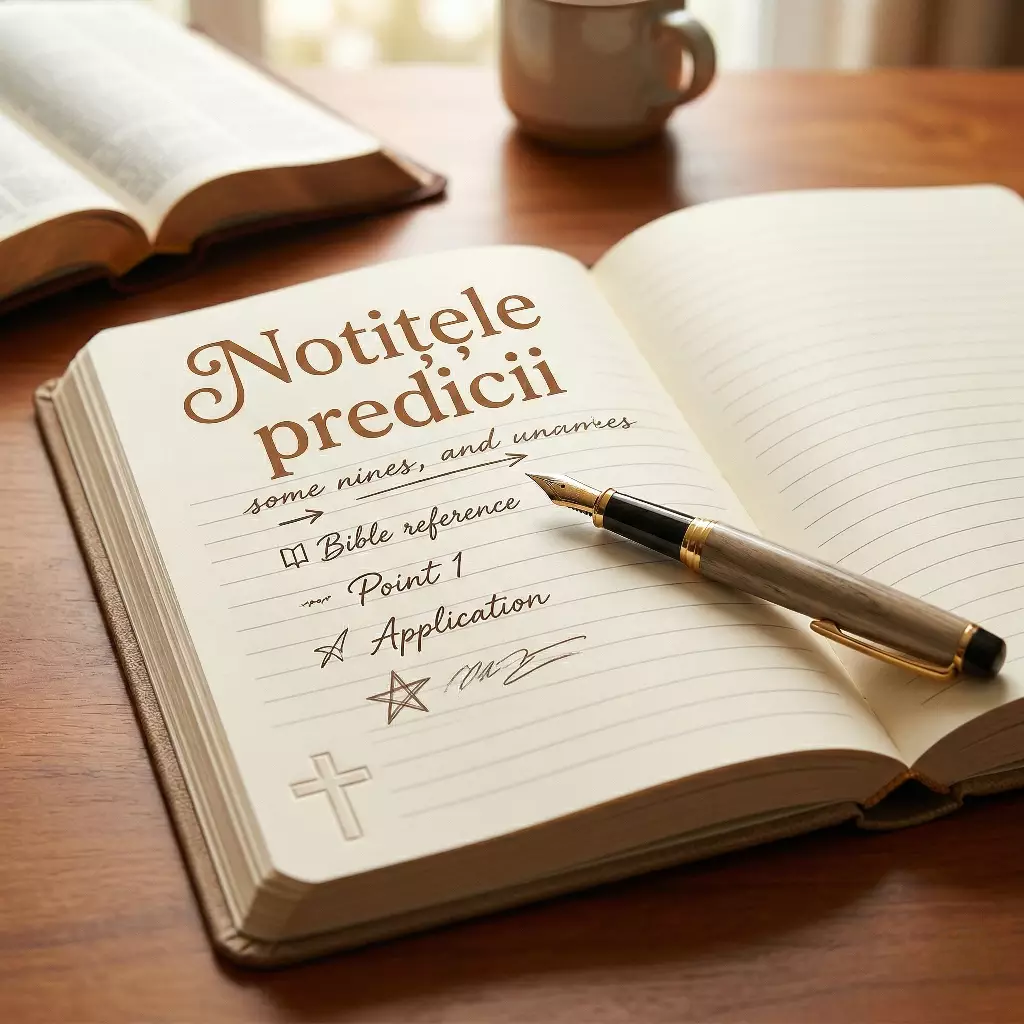 Notițele
predicii
some nines, and
Bible reference
Point 1
Application